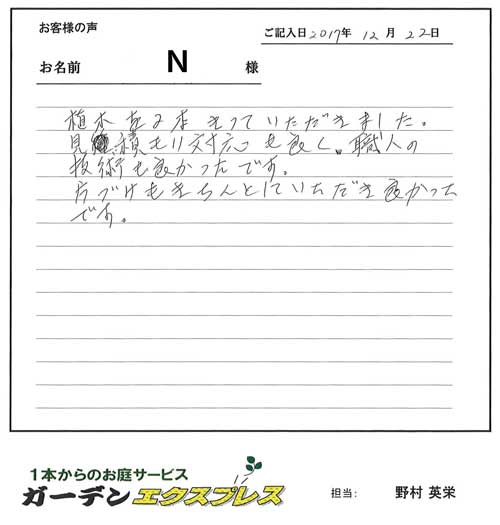 お客様の声
ご記入日 2017年 12月 22日
お名前 N 様
植木を2本きっていただきました。
見積もり対応も良く、職人の
技術も良かったです。
片づけもきちんとしていただき良かった
です。
1本からのお庭サービス
ガーデンエクスプレス
担当: 野村 英栄